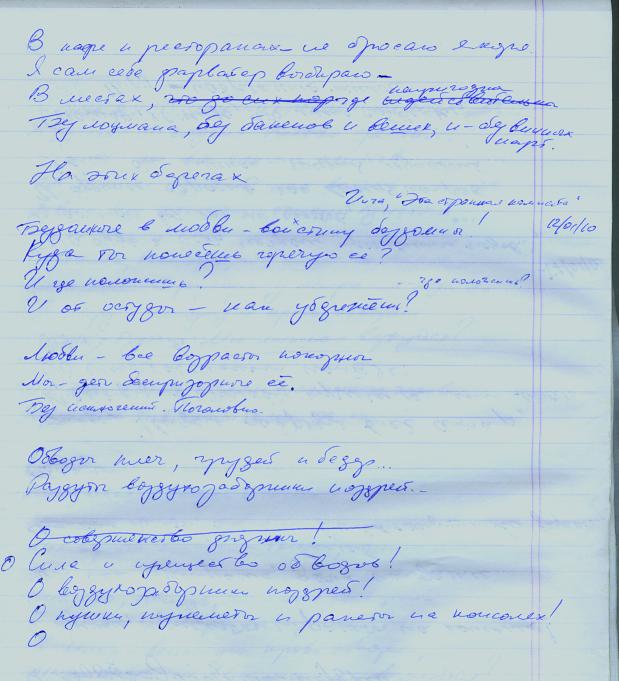 В кафе и ресторанах не бросаю якоря
Я сам себе фарватер выбираю –
В местах, что до сих пор где непригодна недействительны
Без лоцмана, без бакенов и вешек, и – без винных карт.
На этих берегах
"Эта странная комната"
12/01/10
Бездомные в любви – воистину бездомны!
Куда ты понесёшь горячую её?
И где положишь?
где положишь?
И от остуды – как убережёшь?
Любви – все возрасты покорны
Мы – дети беспризорные её.
Без исключений. Поголовно.
Обводы плеч, грудей и бедер...
Раздуты воздухозаборники ноздрей...
О совершенство !
О Сила и изящество обводов!
О воздухозаборники ноздрей!
О пушки, пулеметы и ракеты на консолях!
О